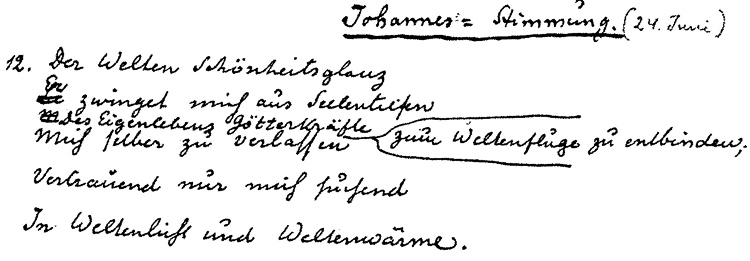 Johannes = Stimmung. (24. Juni)
12. Der Welten Schönheitsglanz
Er zwinget mich aus Seelentiefen
Des Eigenlebens Götterkräfte
zum Weltenfluge zu entbinden;
Mich selber zu verlassen
Vertrauend nur mich suchend
In Weltenlicht und Weltenwärme.